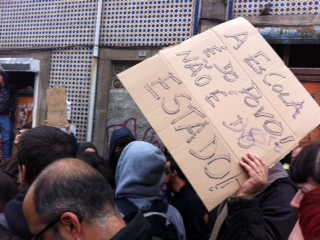 A ESCOLA
É DO POVO!
NÃO É DO
ESTADO!!